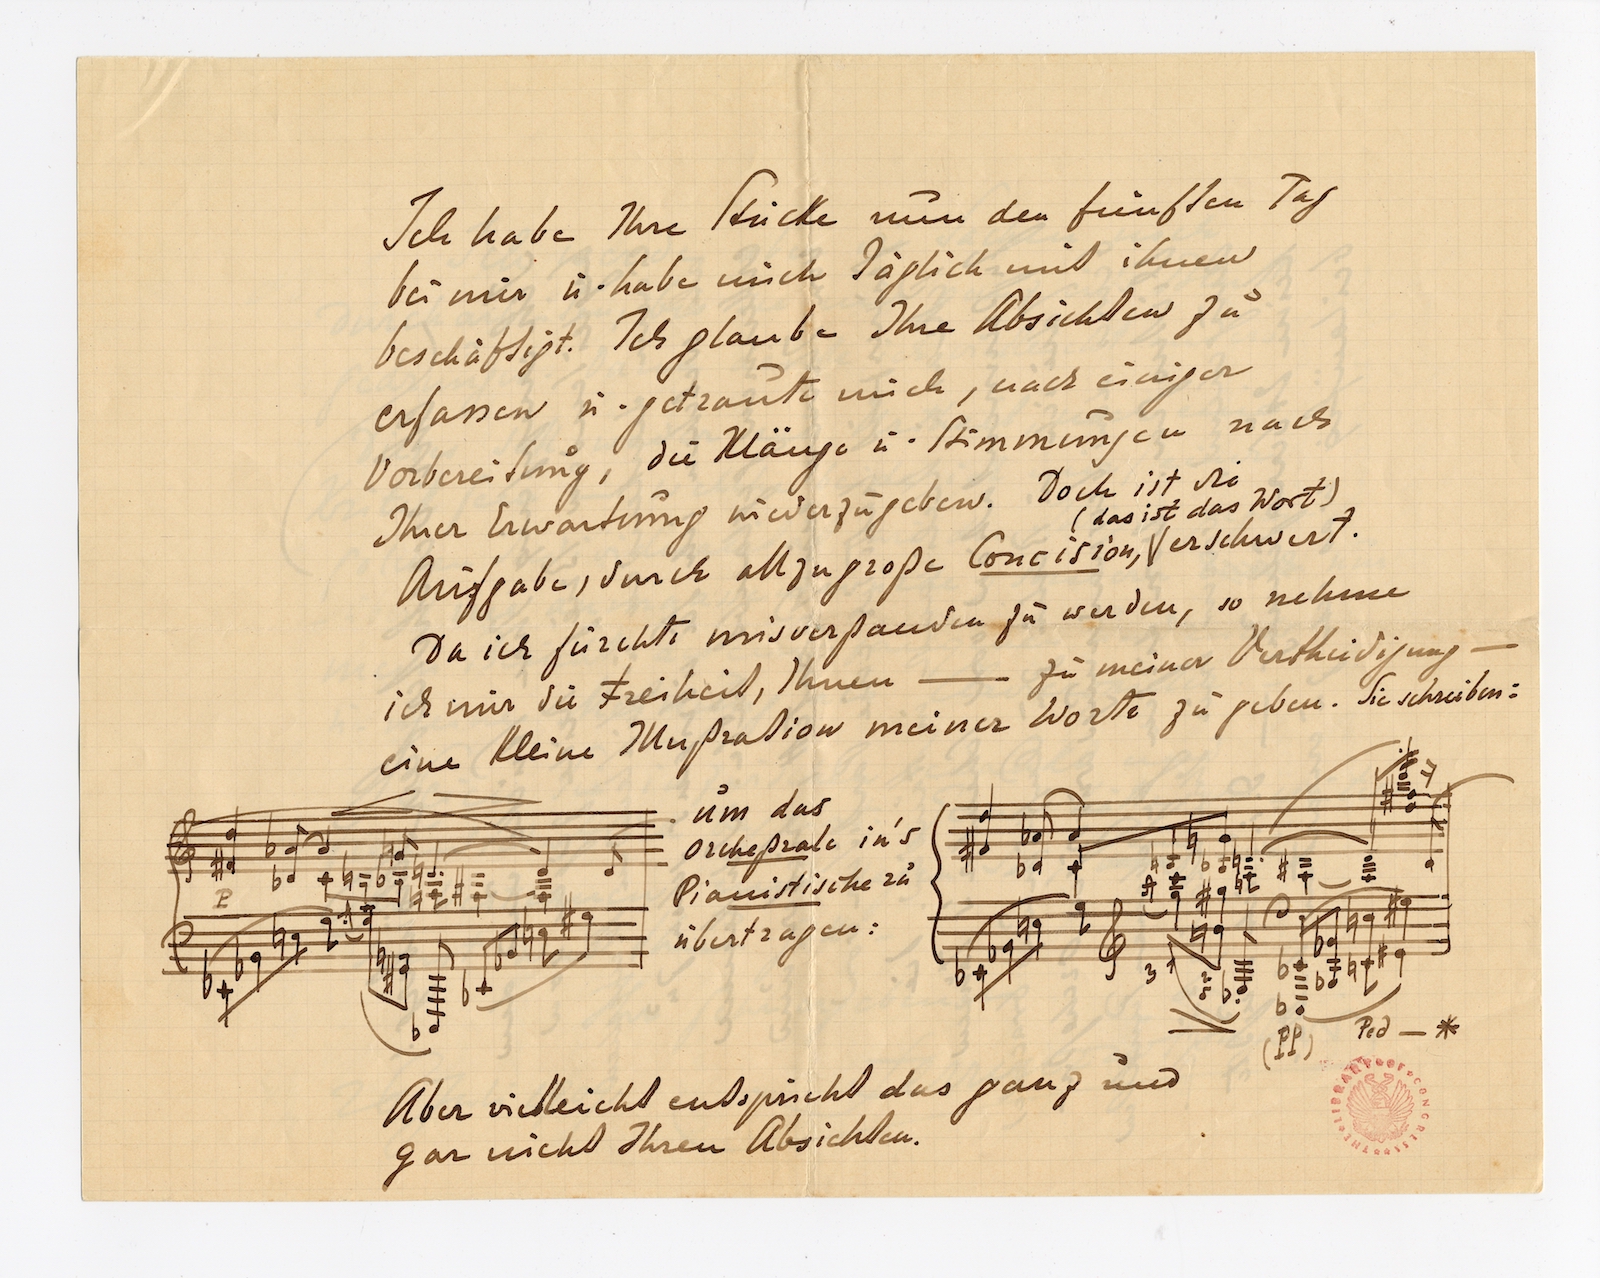 Ich habe Ihre Stücke nun den fünften Tag
bei mir u. habe mich täglich mit ihnen
beschäftigt. Ich glaube Ihre Absichten zu
erfassen u. getraute mich, nach einiger
Vorbereitung, die Klänge u. Stimmungen nach
Ihrer Erwartung wiederzugeben. Doch ist die
(das ist das Wort)
Aufgabe, durch allzugroße Concision, erschwert.
Da ich fürchte misverstanden zu werden, so nehme
ich mir die Freiheit, Ihnen — zu meiner Vertheidigung —
eine kleine Illustration meiner Worte zu geben. Sie schreiben:
um das
orchestrale in's
Pianistische zu
übertragen:
P
3
2
5
(PP)
Ped — *
Aber vielleicht entspricht das ganz und
gar nicht Ihren Absichten.
THE LIBRARY OF CONGRESS